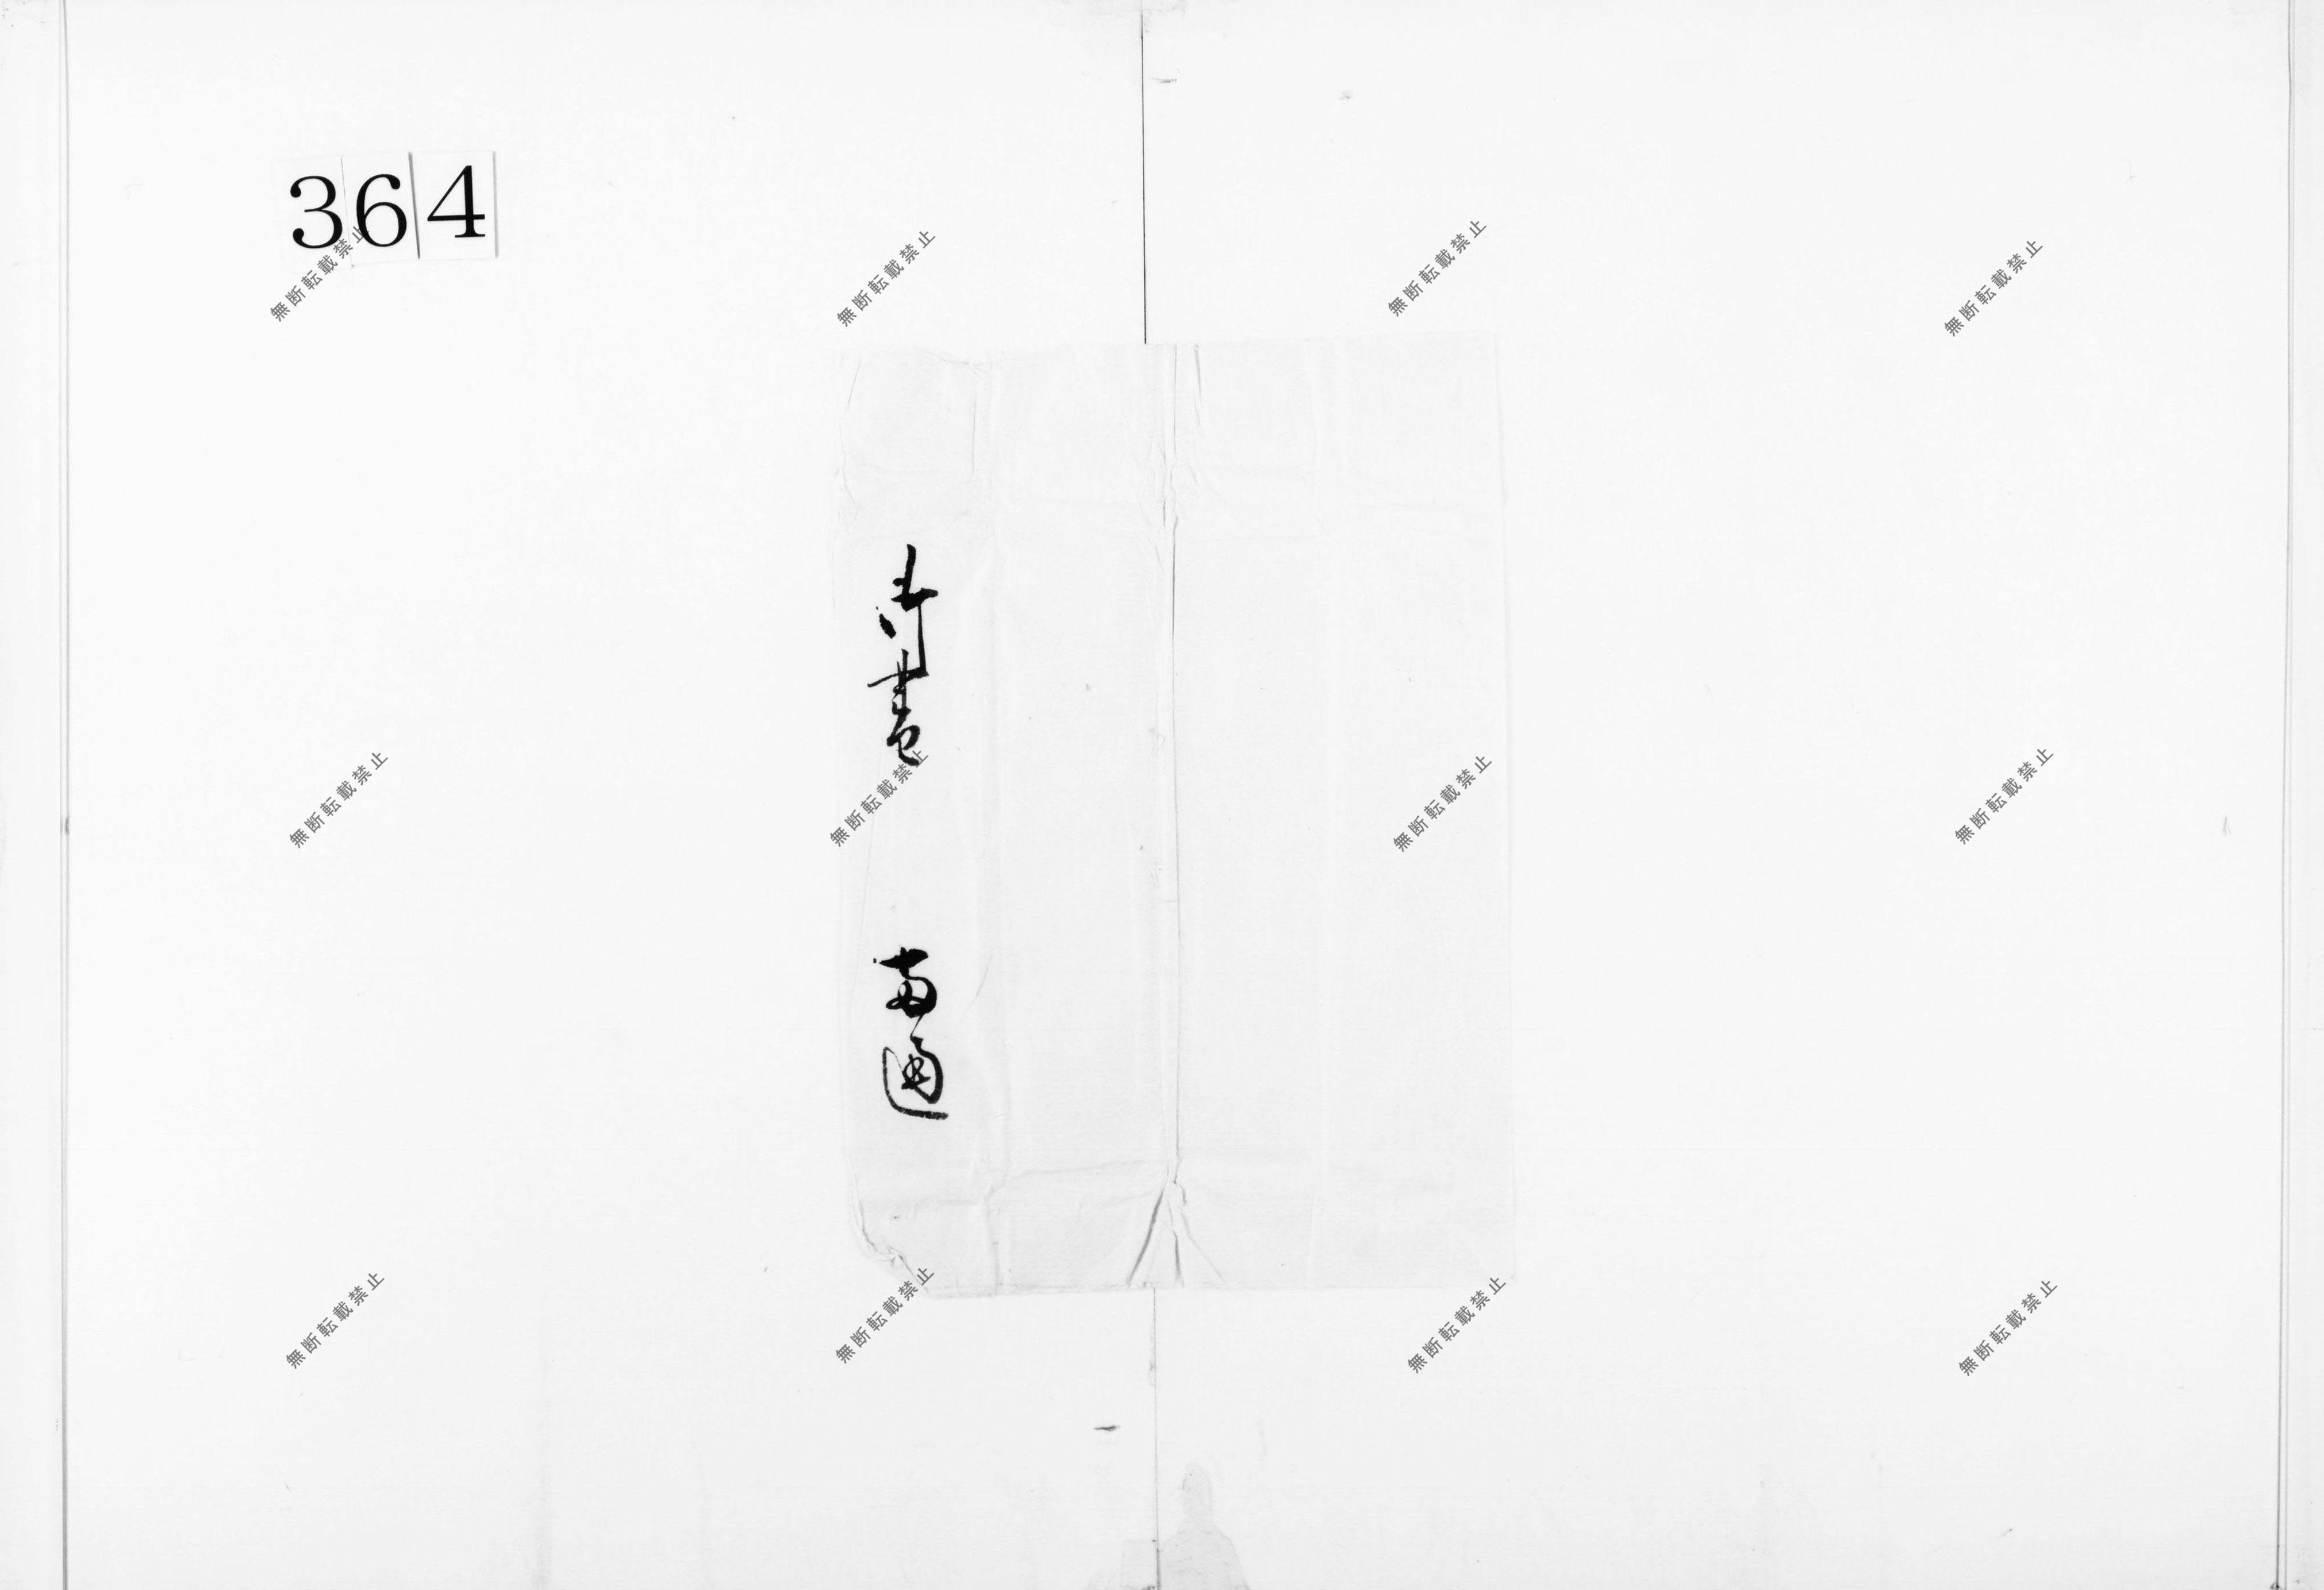 364
御書
両通
無断転載禁止
無断転載禁止
無断転載禁止
無断転載禁止
無断転載禁止
無断転載禁止
無断転載禁止
無断転載禁止
無断転載禁止
無断転載禁止
無断転載禁止
無断転載禁止